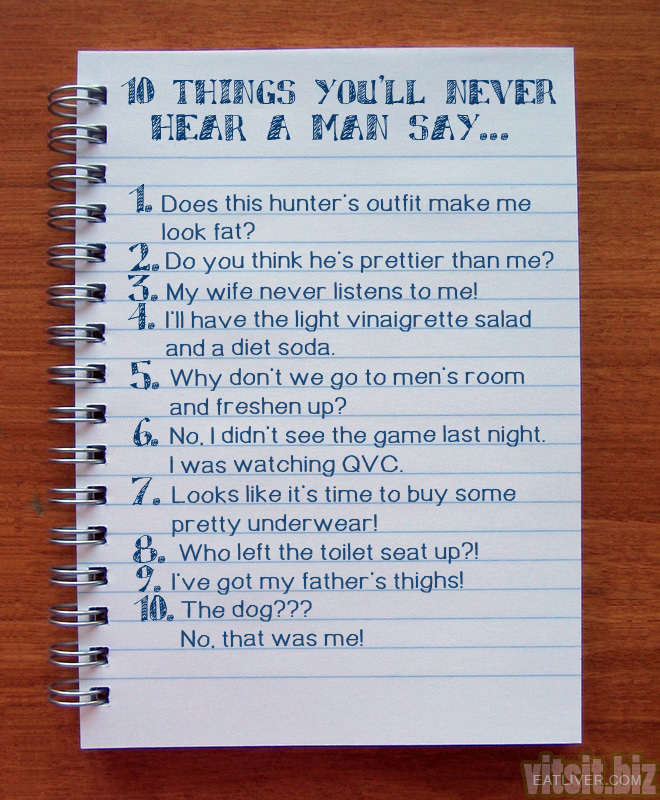 10 THINGS YOU'LL NEVER
HEAR A MAN SAY...
1. Does this hunter's outfit make me
look fat?
2. Do you think he's prettier than me?
3. My wife never listens to me!
4. I'll have the light vinaigrette salad
and a diet soda.
5. Why don't we go to men's room
and freshen up?
6. No, I didn't see the game last night.
I was watching QVC.
7. Looks like it's time to buy some
pretty underwear!
8. Who left the toilet seat up?!
9. I've got my father's thighs!
10. The dog???
No, that was me!
vitsit.biz
EATLIVER.COM